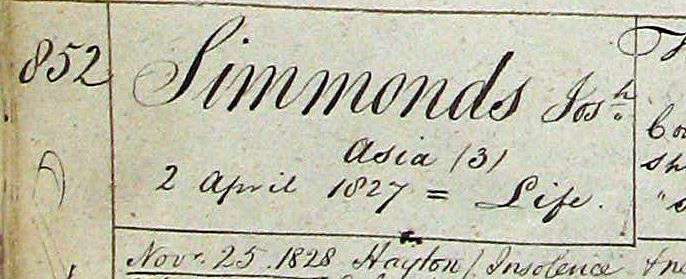 852
Simmonds Josh.
Asia (3)
2 April 1827 = Life.
Novr. 25. 1828 Hayton / Insolence